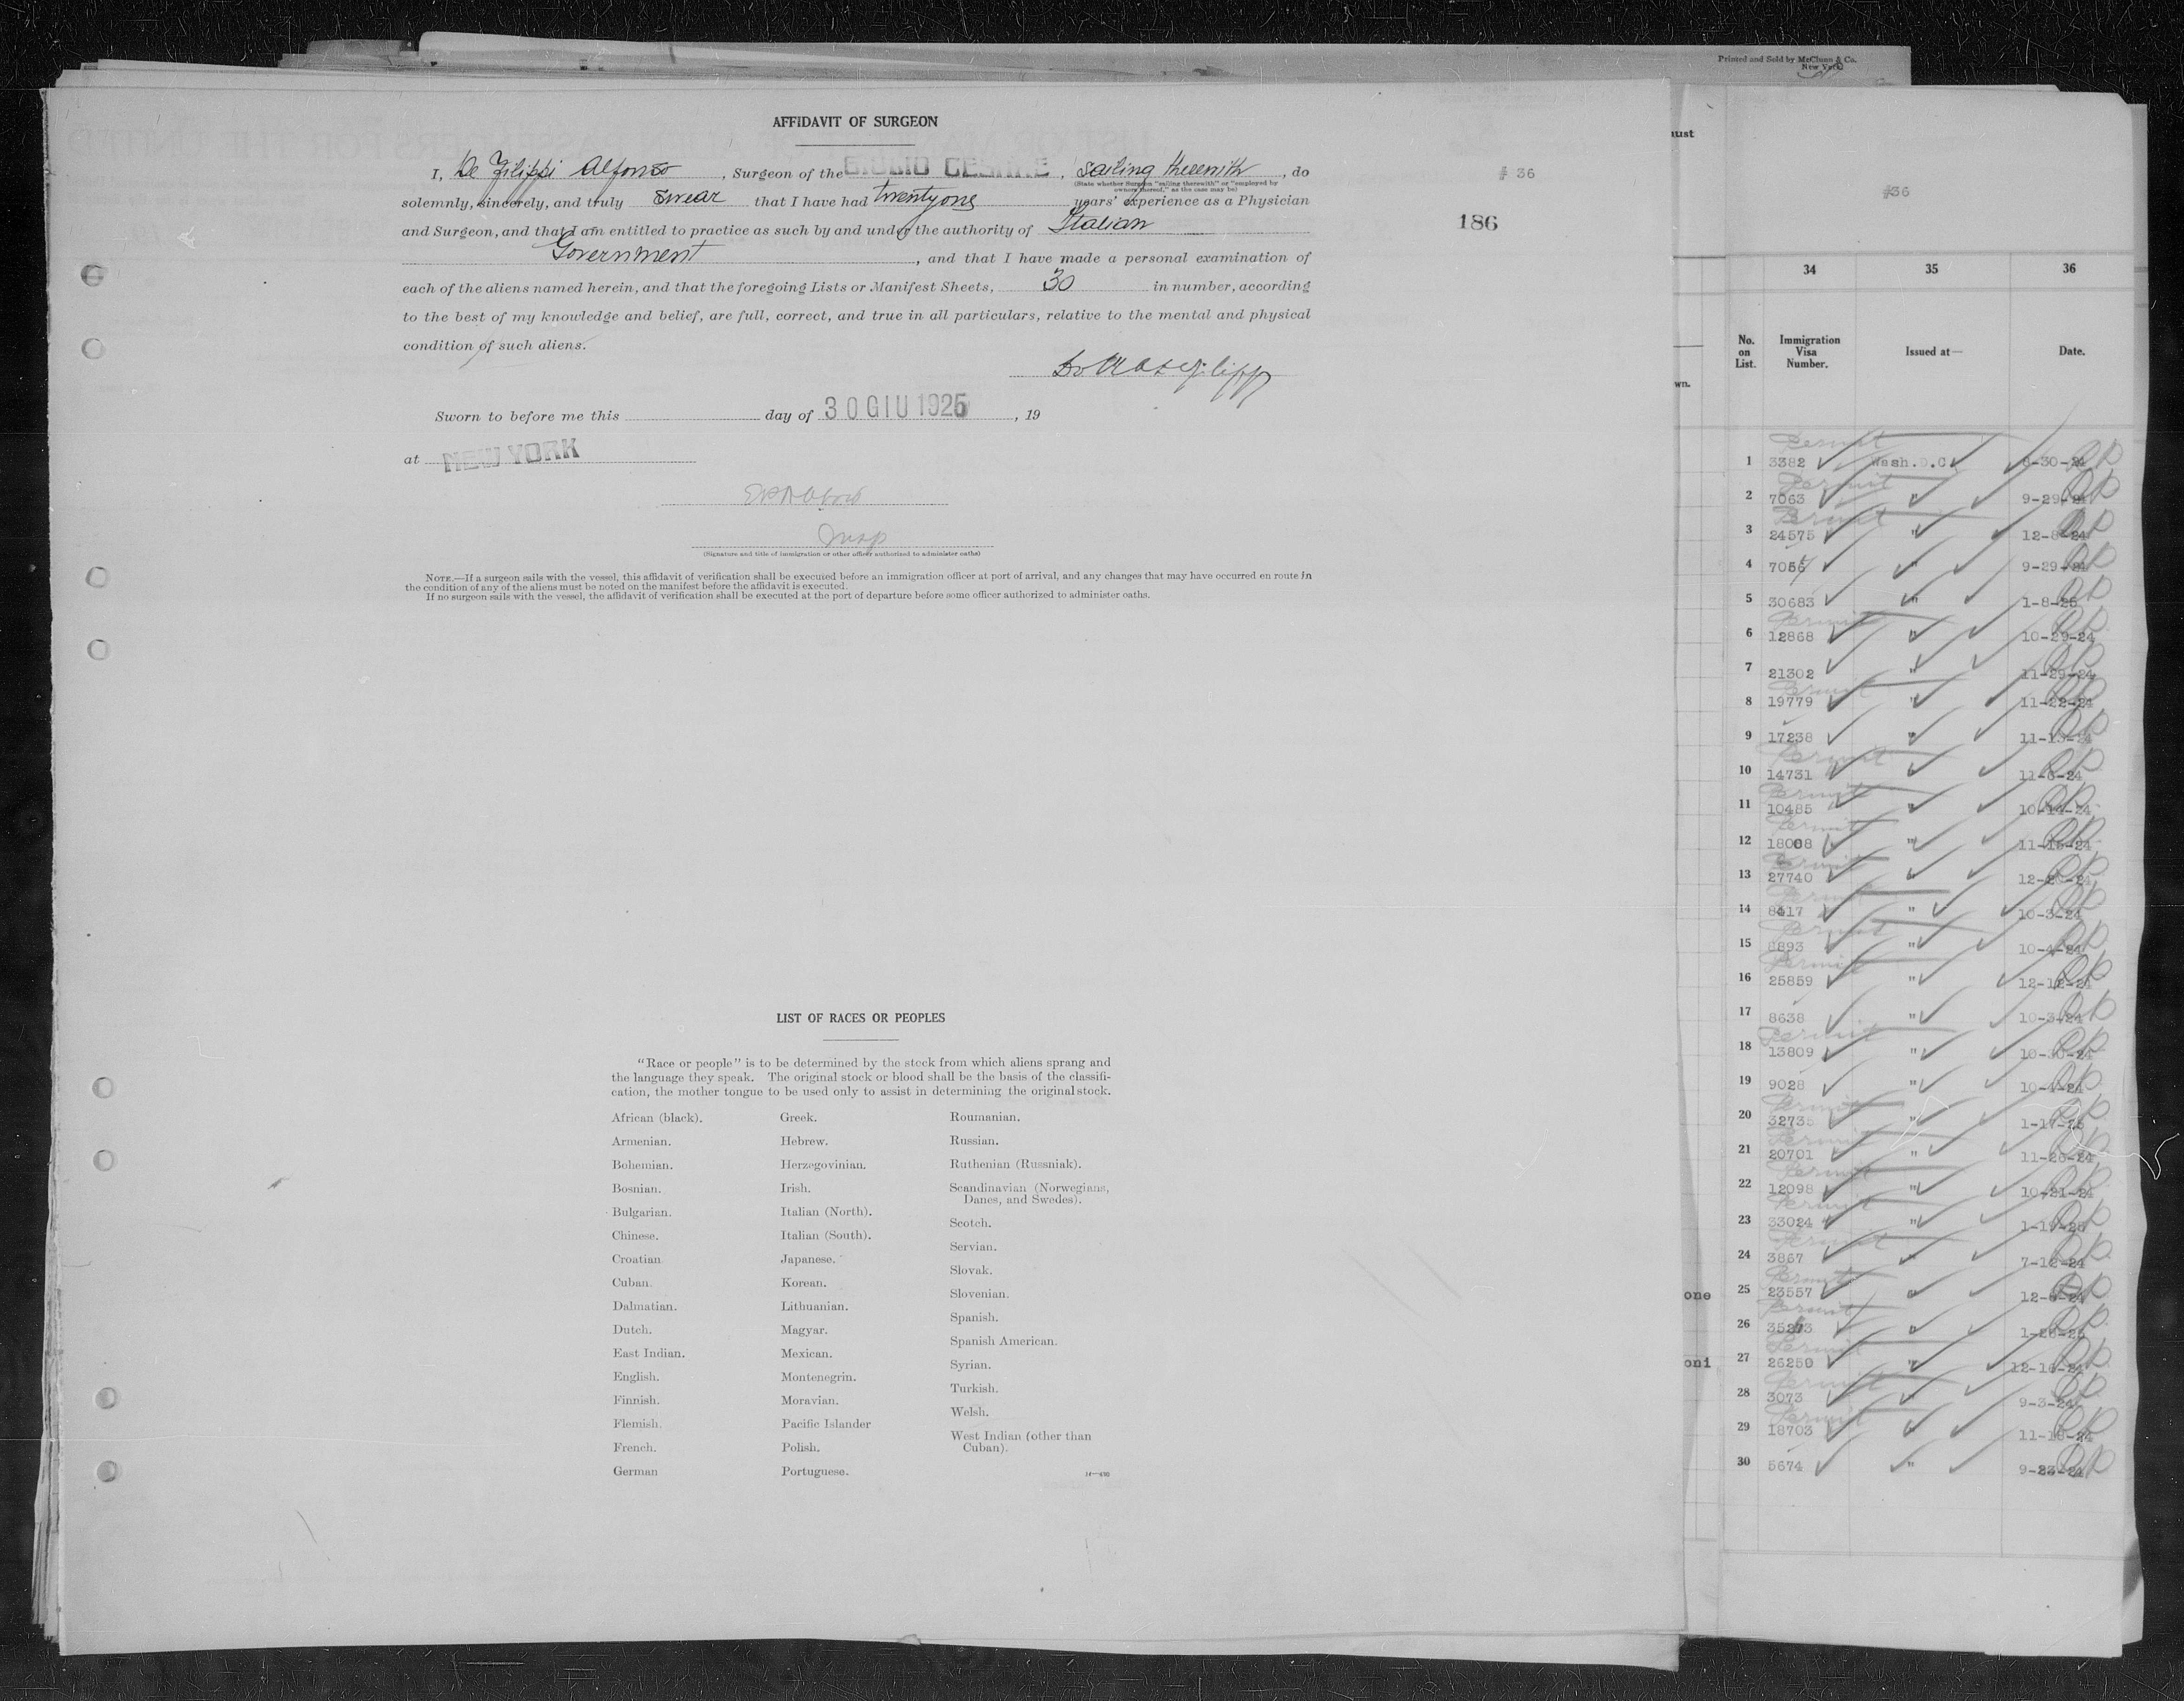 Printed and Sold by McClunn & Co.
New York
AFFIDAVIT OF SURGEON
I, De Filippi Alfonso, Surgeon of the GIULIO CESARE, sailing therewith, do
(State whether Surgeon "sailing therewith" or "employed by
owners thereof," as the case may be)
solemnly, sincerely, and truly swear that I have had twentyone years' experience as a Physician
and Surgeon, and that I am entitled to practice as such by and under the authority of Italian
Government, and that I have made a personal examination of
each of the aliens named herein, and that the foregoing Lists or Manifest Sheets, 30 in number, according
to the best of my knowledge and belief, are full, correct, and true in all particulars, relative to the mental and physical
condition of such aliens.
Sworn to before me this day of 30 GIU 1925, 19
at NEW YORK
Insp
(Signature and title of immigration or other officer authorized to administer oaths)
NOTE.—If a surgeon sails with the vessel, this affidavit of verification shall be executed before an immigration officer at port of arrival, and any changes that may have occurred en route in
the condition of any of the aliens must be noted on the manifest before the affidavit is executed.
If no surgeon sails with the vessel, the affidavit of verification shall be executed at the port of departure before some officer authorized to administer oaths.
# 36
186
LIST OF RACES OR PEOPLES
"Race or people" is to be determined by the stock from which aliens sprang and
the language they speak. The original stock or blood shall be the basis of the classifi-
cation, the mother tongue to be used only to assist in determining the original stock.
African (black).
Armenian.
Bohemian.
Bosnian.
Bulgarian.
Chinese.
Croatian
Cuban.
Dalmatian.
Dutch.
East Indian.
English.
Finnish.
Flemish.
French.
German
Greek.
Hebrew.
Herzegovinian.
Irish.
Italian (North).
Italian (South).
Japanese.
Korean.
Lithuanian.
Magyar.
Mexican.
Montenegrin.
Moravian.
Pacific Islander
Polish.
Portuguese.
Roumanian.
Russian.
Ruthenian (Russniak).
Scandinavian (Norwegians,
Danes, and Swedes).
Scotch.
Servian.
Slovak.
Slovenian.
Spanish.
Spanish American.
Syrian.
Turkish.
Welsh.
West Indian (other than
Cuban).
ust
wn.
one
oni
#36
34 35 36
No.
on
List.
Immigration
Visa
Number.
Issued at—
Date.
Permit
1 3382 Wash.D.C. 6-30-24
Permit
2 7063 " 9-29-24
Permit
3 24575 " 12-8-24
4 7056 " 9-29-24
5 30683 " 1-8-25
Permit
6 12868 " 10-29-24
7 21302 " 11-29-24
Permit
8 19779 " 11-22-24
9 17238 " 11-13-24
Permit
10 14731 " 11-6-24
Permit
11 10485 " 10-14-24
Permit
12 18008 " 11-15-24
Permit
13 27740 "
Permit
14 8417 " 10-3-24
Permit
15 8893 " 10-4-24
Permit
16 25859 " 12-12-24
17 8638 " 10-3-24
Permit
18 13809 " 10-30-24
19 9028 " 10-4-24
Permit
20 32735 " 1-17-25
Permit
21 20701 " 11-26-24
Permit
22 12098 " 10-21-24
Permit
23 33024 " 1-19-25
Permit
24 3867 " 7-12-24
Permit
25 23557 " 12-6-24
Permit
26 " 1-28-25
Permit
27 26250 " 12-16-24
Permit
28 3073 " 9-3-24
Permit
29 18703 " 11-18-24
30 5674 " 9-23-24